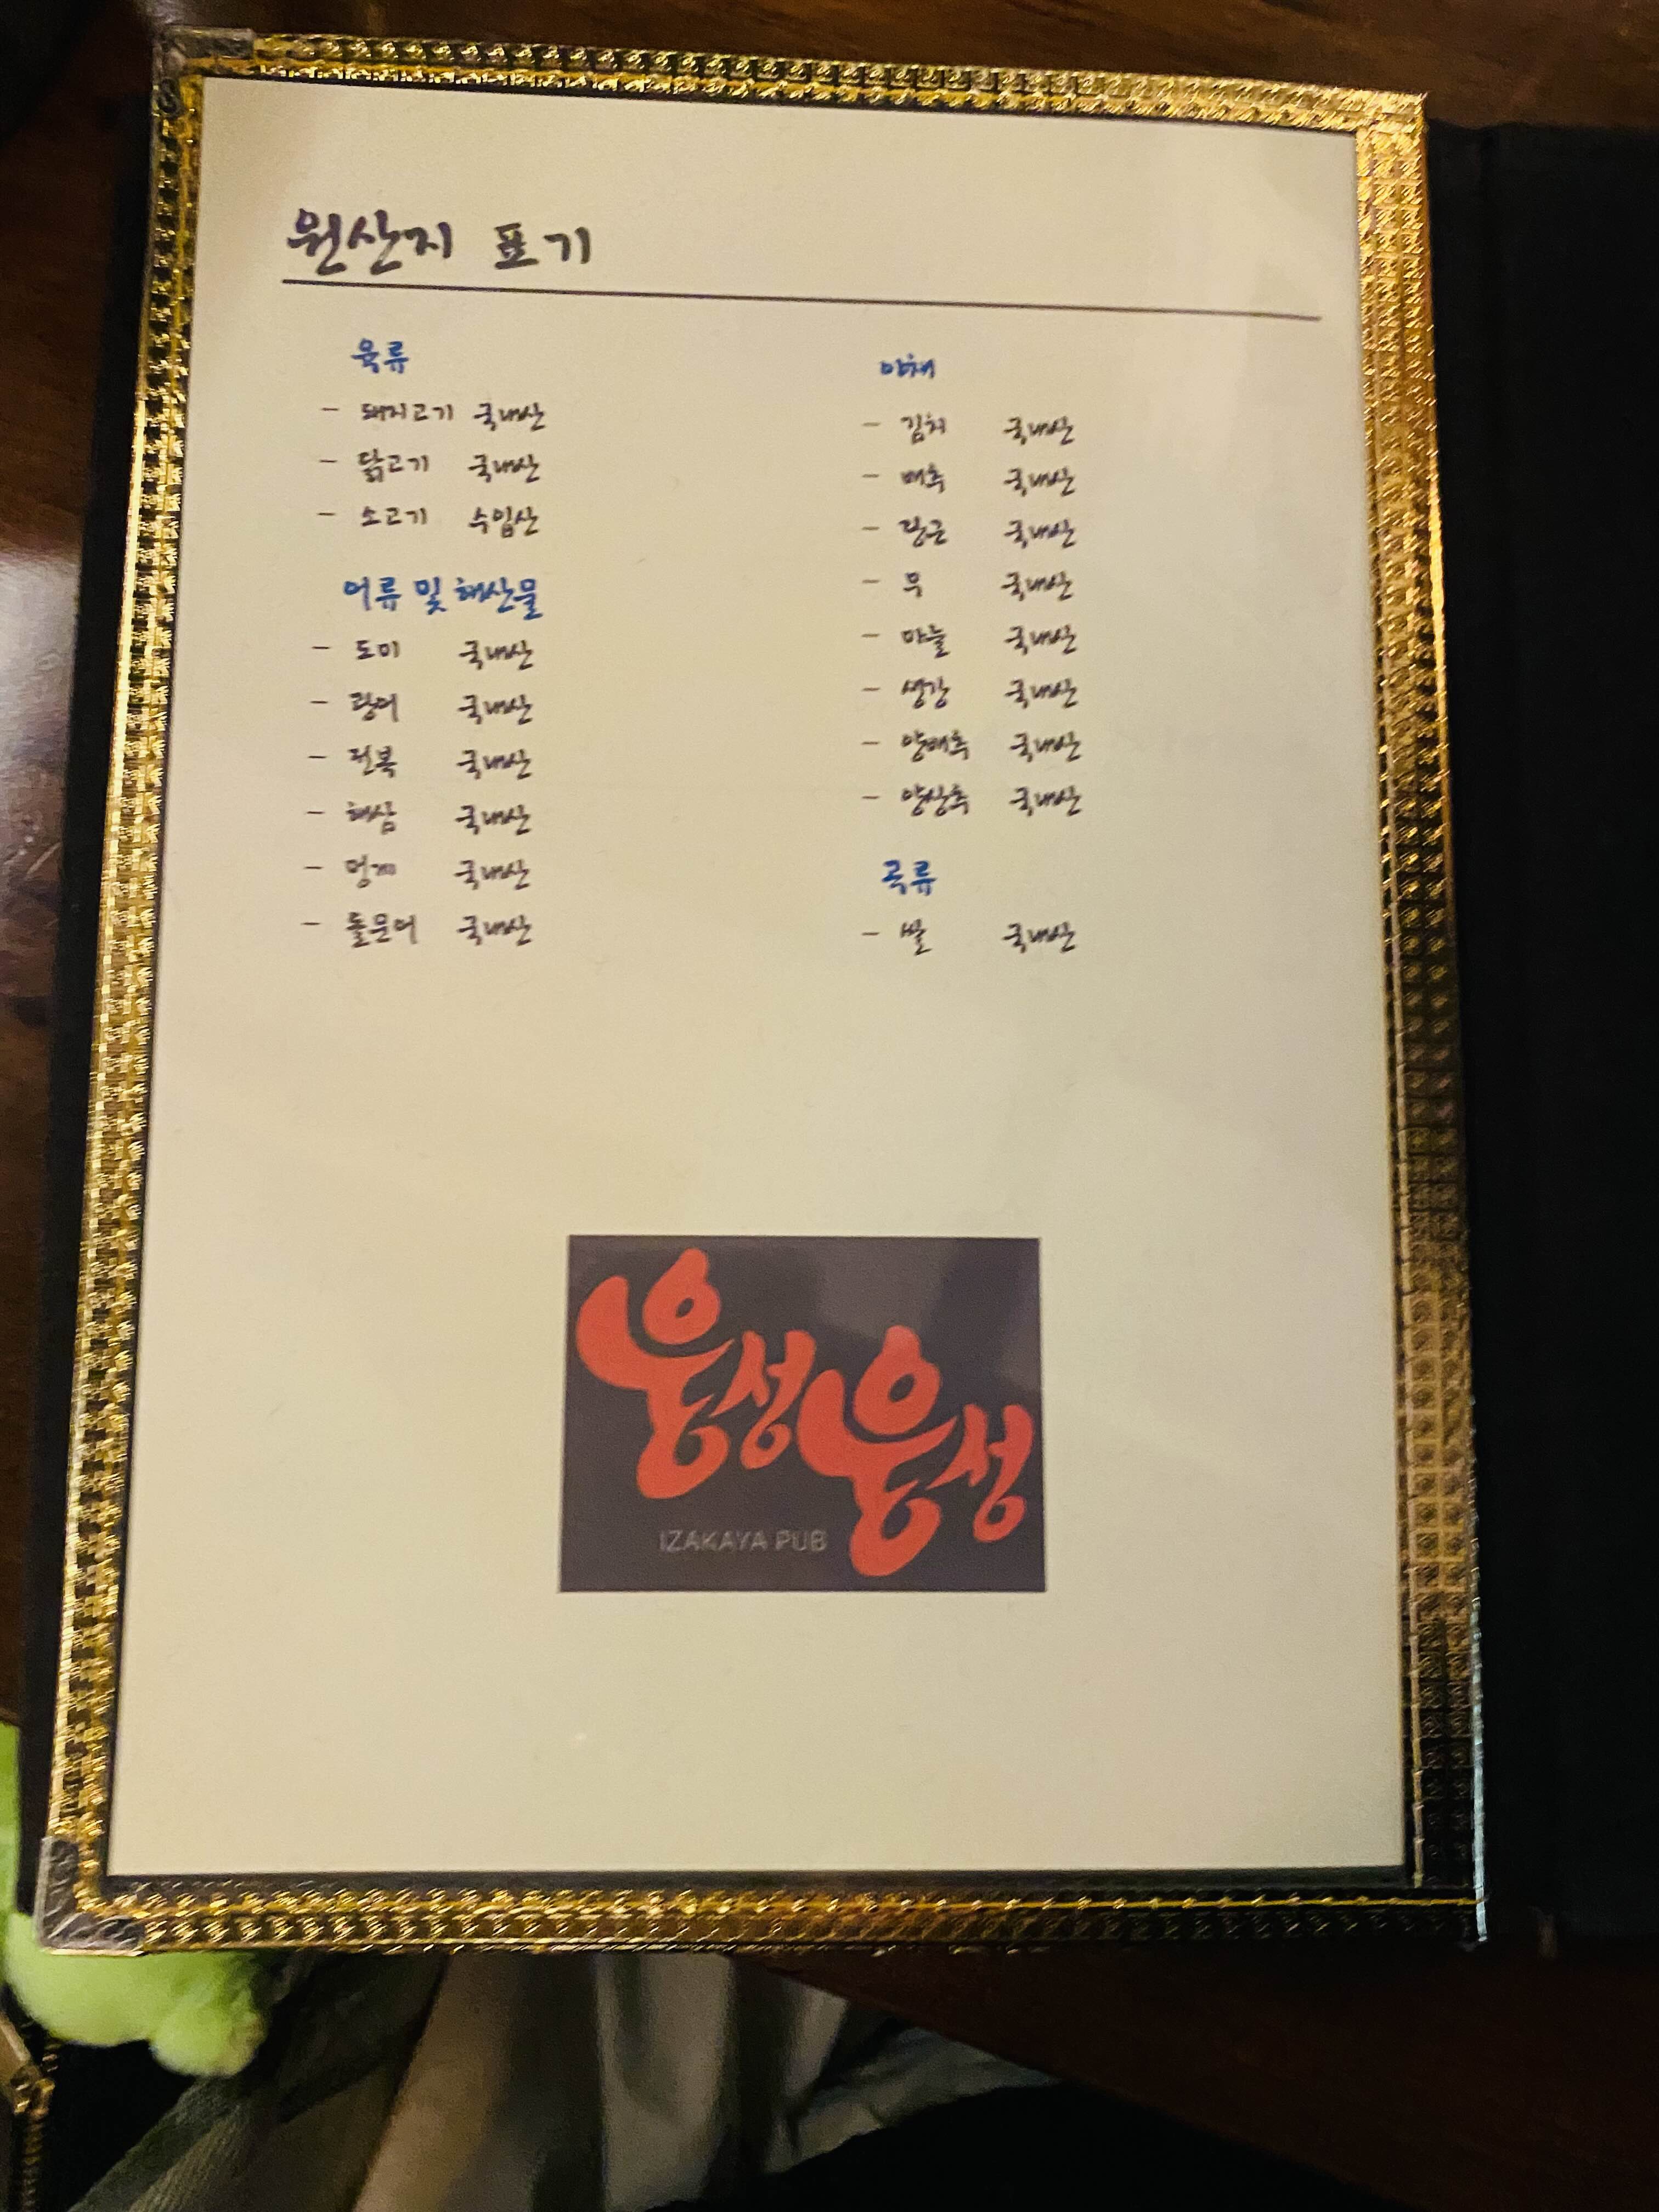 원산지 표기
육류
- 돼지고기 국내산
- 닭고기 국내산
- 소고기 수입산
어류 및 해산물
- 도미 국내산
- 광어 국내산
- 전복 국내산
- 해삼 국내산
- 멍게 국내산
- 돌문어 국내산
야채
- 김치 국내산
- 배추 국내산
- 당근 국내산
- 무 국내산
- 마늘 국내산
- 생강 국내산
- 양배추 국내산
- 양상추 국내산
곡류
- 쌀 국내산
웅성웅성
IZAKAYA PUB